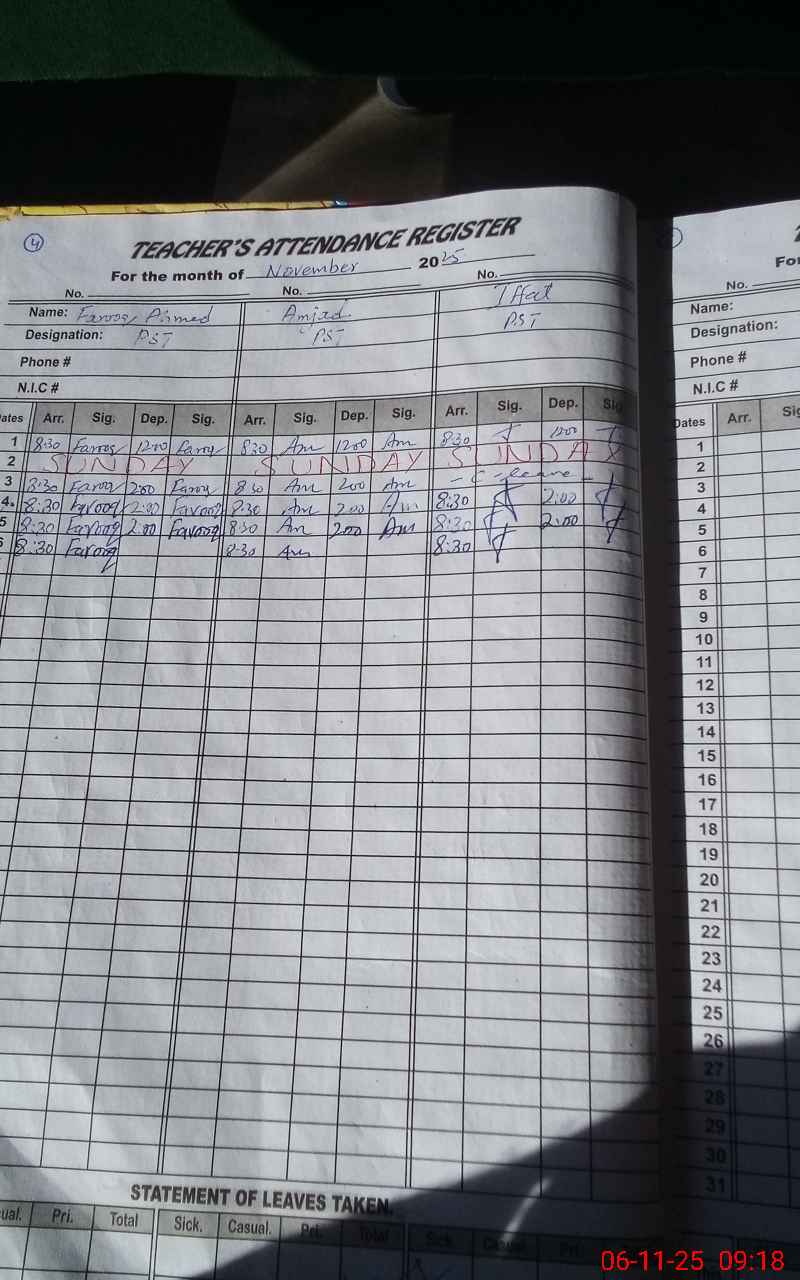 4
TEACHER'S ATTENDANCE REGISTER
For the month of November 2025
No. No. No.
Name: Farooq Ahmed Amjad Iffat
Designation: PST PST PST
Phone #
N.I.C #
Dates Arr. Sig. Dep. Sig. Arr. Sig. Dep. Sig. Arr. Sig. Dep. Sig
1 8:30 Farooq 1200 Farooq 830 Am 1200 Am 8:30 1200
2 SUNDAY SUNDAY SUNDAY
3 8:30 Farooq 200 Farooq 830 Am 200 Am - C-leave -
4. 8:30 Farooq 2:00 Farooq 8:30 Am 200 Am 8:30 2:00
5 8:30 Farooq 2:00 Farooq 830 Am 200 Am 8:30 2:00
6 8:30 Farooq 8:30 Am 8:30
STATEMENT OF LEAVES TAKEN.
ual. Pri. Total Sick. Casual. Pri. Total Sick. Casual. Pri.
No.
Name:
Designation:
Phone #
N.I.C #
Dates Arr.
1
2
3
4
5
6
7
8
9
10
11
12
13
14
15
16
17
18
19
20
21
22
23
24
25
26
27
28
29
30
31
06-11-25 09:18